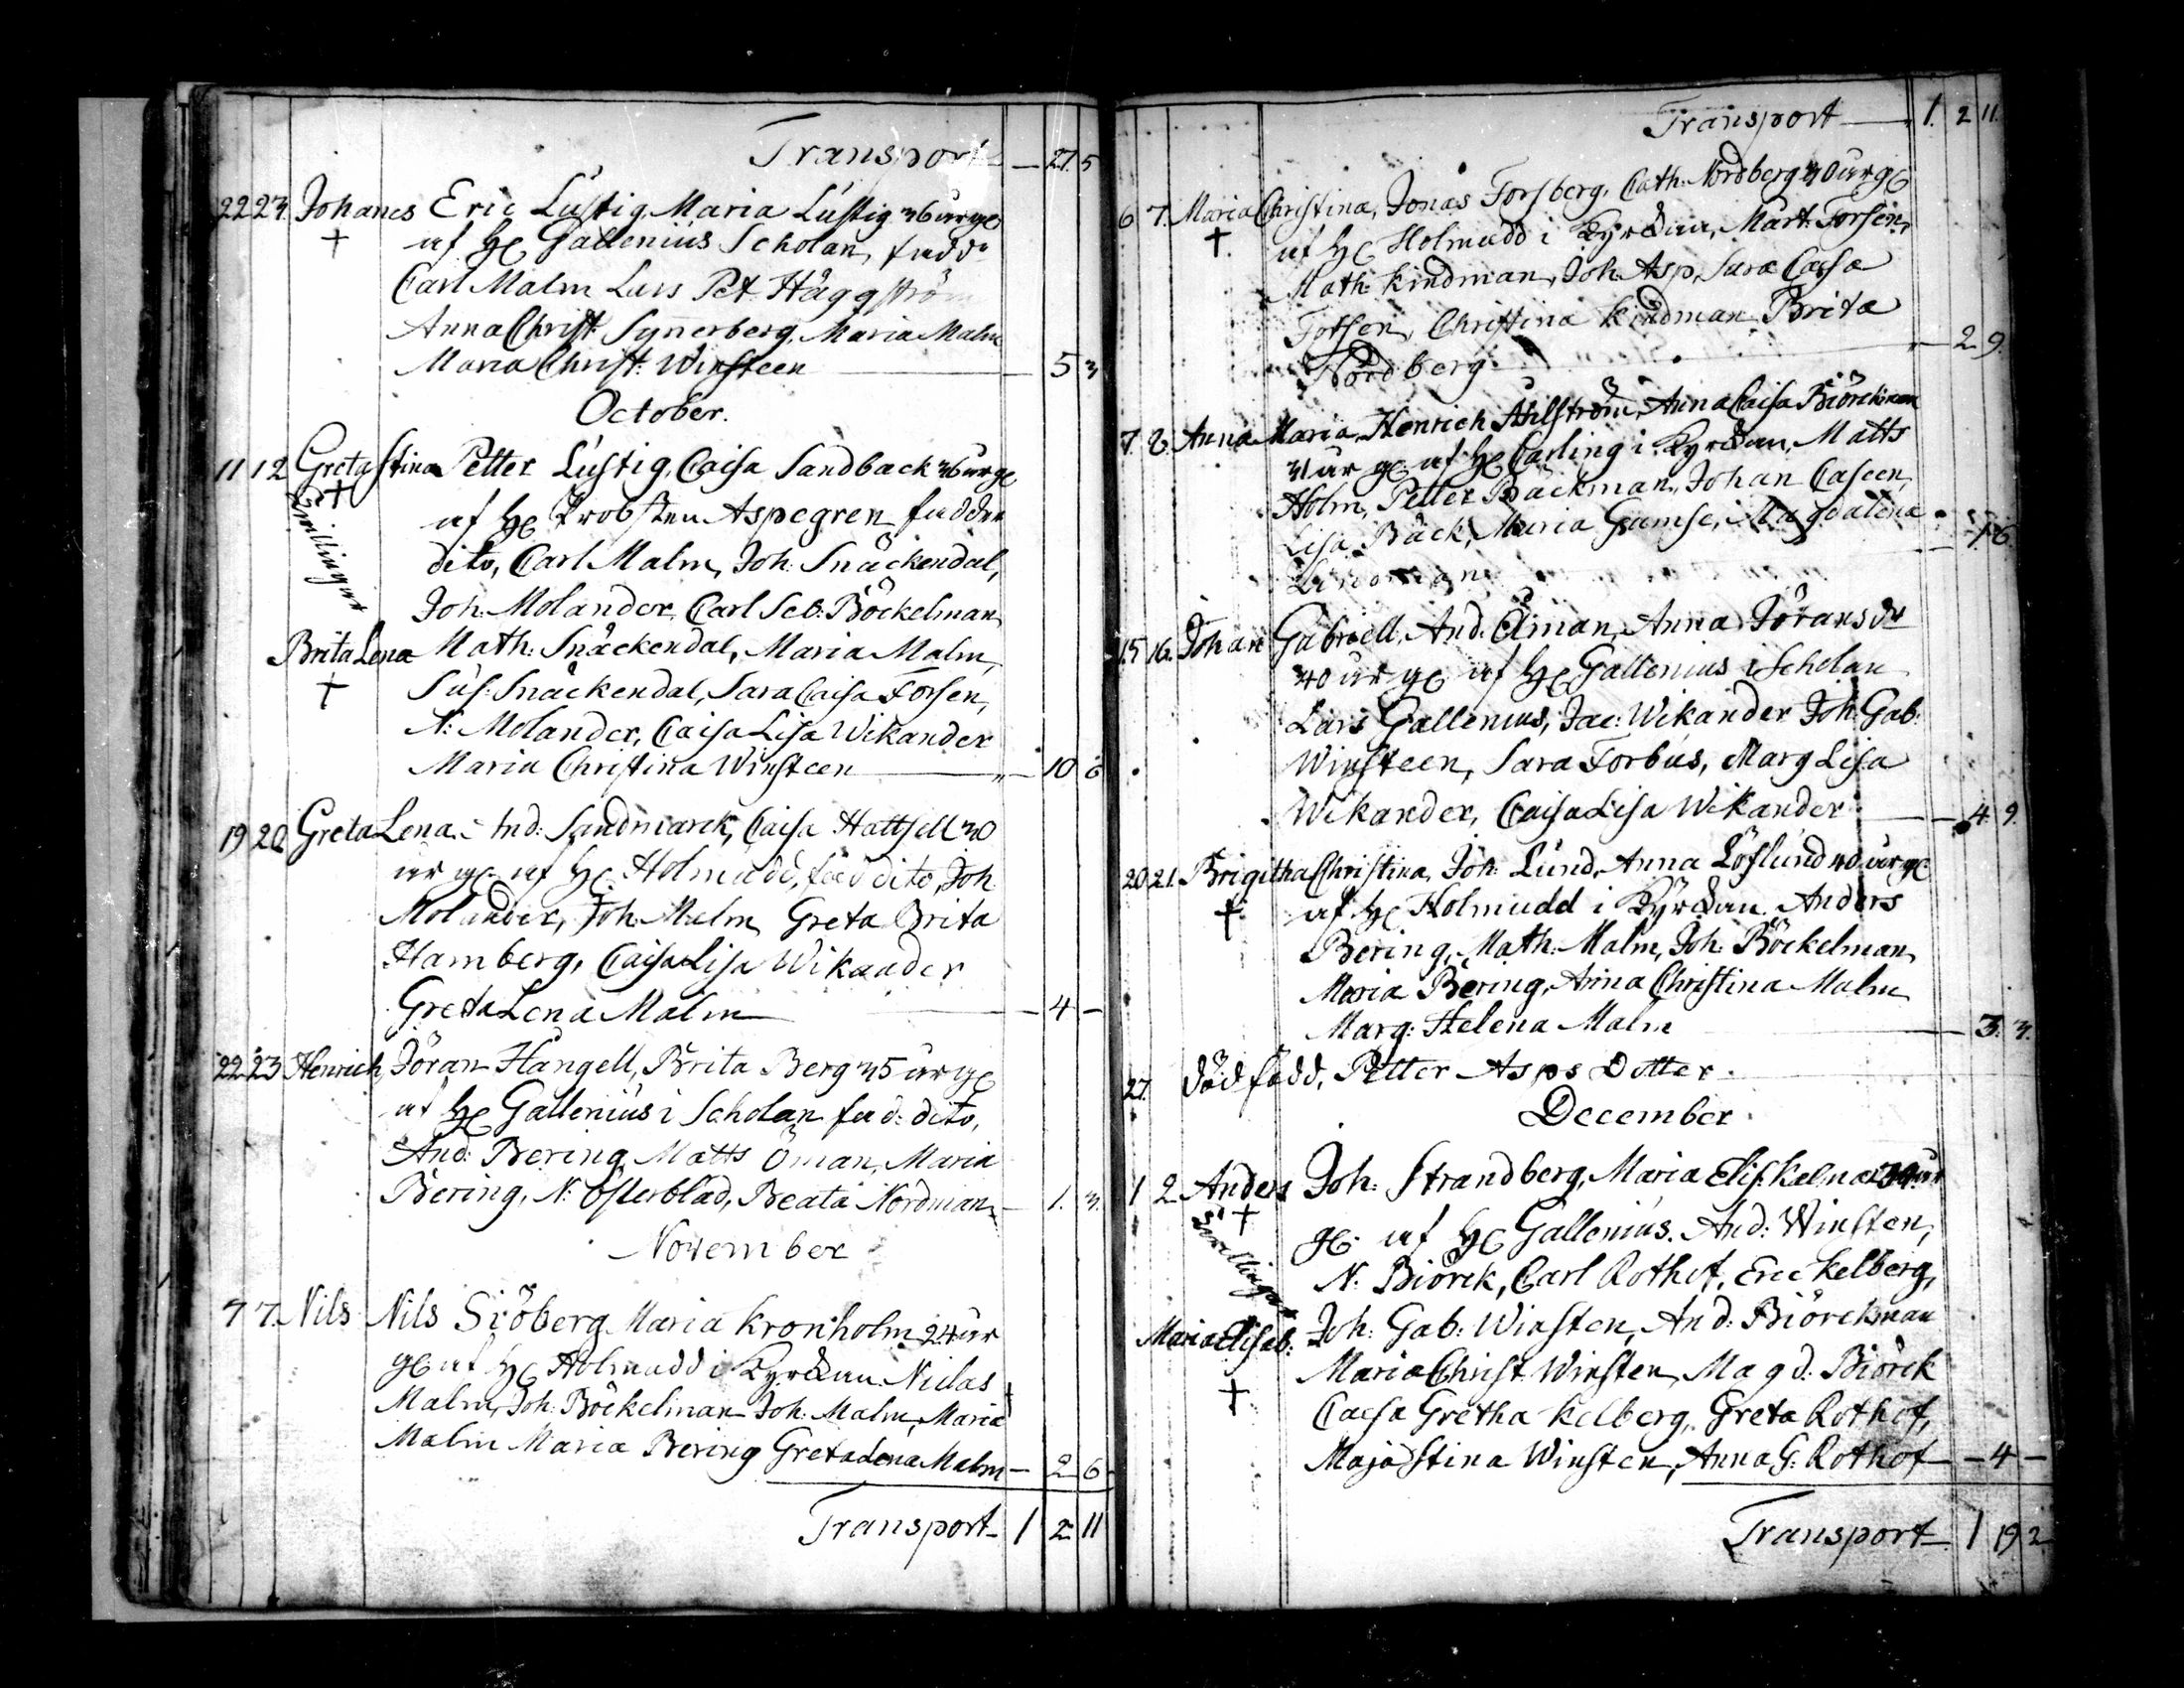 Transport — 27 5
22 23 Johanes Eric Lustig, Maria Lustig 36 år ge
† af H Gallenius Scholan, fadd
Carl Malm Lars Pet. Häggström
Anna Christ. Synnerberg, Maria Malm
Maria Christ: Winsteen — 5 3
October.
11 12 Greta Stina Petter Lustig, Caisa Sandback 36 år ge
† af H Probsten Aspegren faddr
Tvillingar
dito, Carl Malm, Joh: Snäckendal,
Joh: Molander, Carl Seb: Böckelman
Brita Lena Math: Snäckendal, Maria Malm,
† Sus: Snäckendal, Sara Caisa Forsen,
N: Molander, Caisa Lisa Wikander
Maria Christina Winsteen — 10 6
19 20 Greta Lena And: Sandmarck, Caisa Hattsell 30
år ge af H Holmudd, fad dito, Joh
Molander, Joh. Malm Greta Brita
Hamberg, Caisa Lisa Wikander
Greta Lena Malm — 4 —
22 23 Henrich, Jöran Hangell, Brita Berg 35 år ge
af H Gallenius i Scholan fad: dito,
And: Bering Matts Öman, Maria
Bering, N: Österblad, Beata Nordman — 1. 3.
November
7 Nils Nils Siöberg Maria Kronholm 24 år
ge af H Holmudd i Kyrckan Niclas
Malm, Joh: Böckelman Joh: Malm, Maria
Malm Maria Bering Greta Lena Malm — 2 6
Transport 1 2 11
Transport — 1. 2 11.
6 7. Maria Christina, Jonas Forsberg, Cath: Nordberg 30 år ge
† af H Holmudd i Kyrckan, Mårt: Forsen,
Math: Kindman, Joh: Asp, Sara Caisa
Forsen, Christina Kindman Brita
Nordberg — 2 9.
7. 8. Anna Maria, Henrich Ahlström, Anna Caisa Biörckman
31 år ge af H Carling i Kyrckan, Matts
Holm, Petter Backman, Johan Caseen,
Lisa Back, Maria Gamse, Magdalena — 1. 6.
Lindman
15 16. Johan Gabriell, And: Öman, Anna Jörans dr
40 år ge af H Gallenius i Scholan
Lars Gallenius, Jac: Wikander Joh: Gab:
Winsteen, Sara Forbus, Marg Lisa
Wikander, Caisa Lisa Wikander — 4. 9.
20 21. Brigitha Christina, Joh: Lund, Anna Löflund 40 år ge
† af H Holmudd i Kyrckan Anders
Bering, Math: Malm, Joh: Böckelman,
Maria Bering, Anna Christina Malm
Marg: Helena Malm — 3. 3.
27. död född, Petter Asps Dotter
December
1 2 Anders Joh: Strandberg, Maria Elis. år
† ge af H Gallenius. And: Winsten,
Tvillingar
N. Biörck, Carl Rothof, Eric Kelberg,
Maria Elisab: Joh: Gab: Winsten, And: Biörckman
† Maria Christ Winsten, Magd: Biörck
Caisa Gretha Kelberg, Greta Rothof,
Maja Stina Winsten, Anna G: Rothof — 4 —
Transport 1 19 2